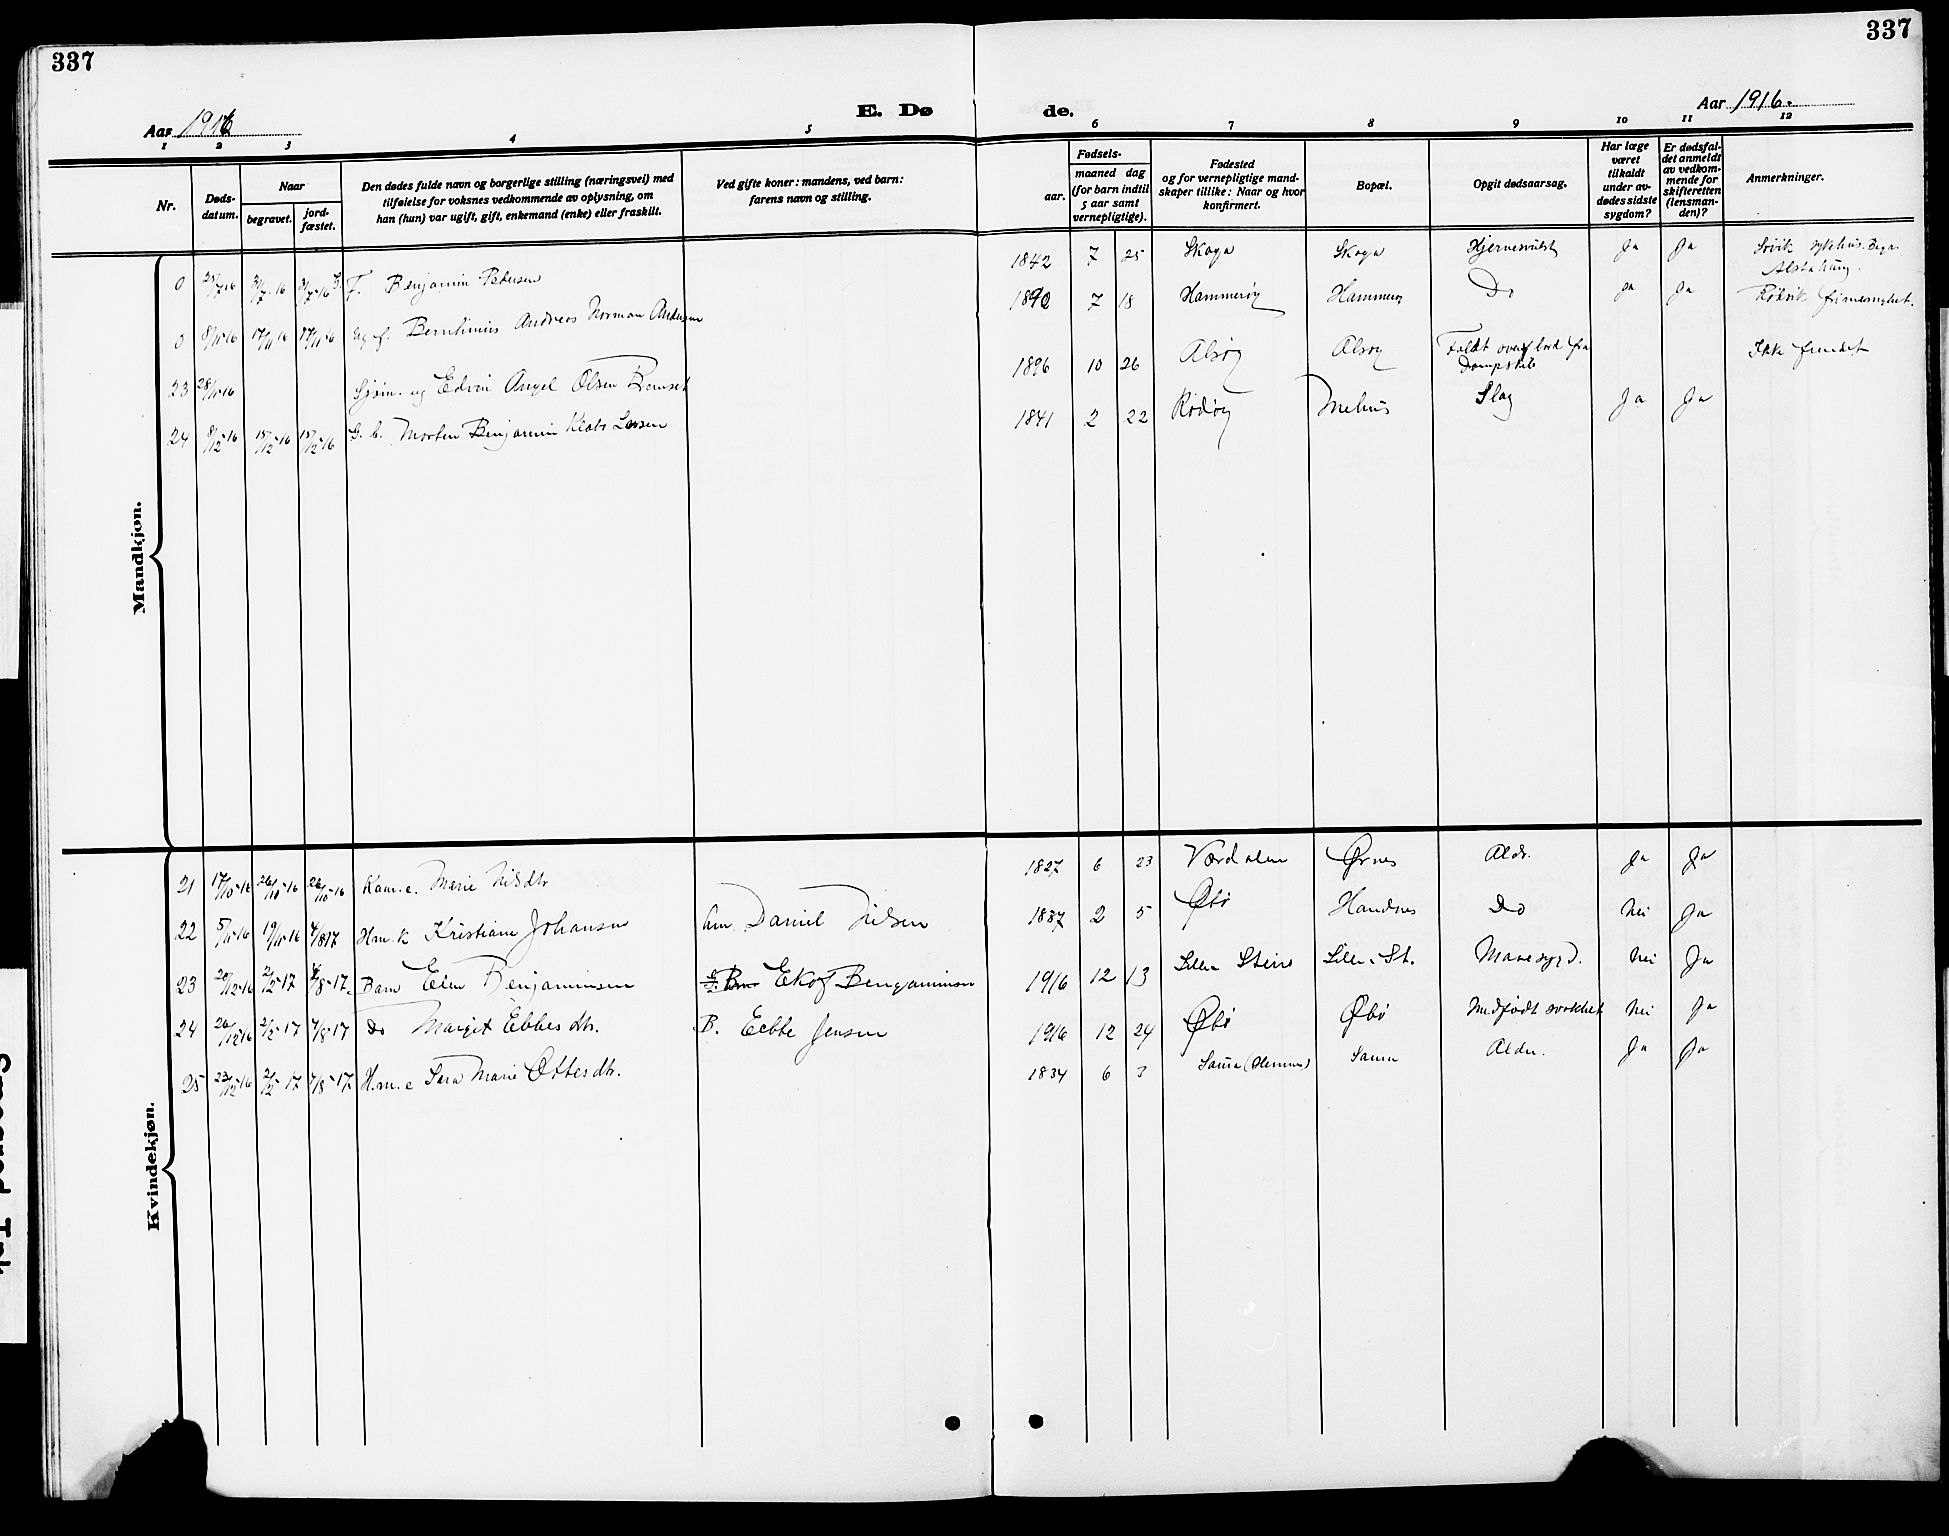 337
337
Aar 1916
E. Døde.
Aar 1916.
1 2 3 4 5 6 7 8 9 10 11 12
Nr.
Døds-
datum.
Naar
begravet.
jord-
fæstet.
Den dødes fulde navn og borgerlige stilling (næringsvei) med
tilføielse for voksnes vedkommende av oplysning, om
han (hun) var ugift, gift, enkemand (enke) eller fraskilt.
Ved gifte koner: mandens, ved barn:
farens navn og stilling.
Fødsels-
aar.
maaned dag
(for barn indtil
5 aar samt
vernepligtige).
Fødested
og for vernepligtige mand-
skaper tillike: Naar og hvor
konfirmert.
Bopæl.
Opgit dødsaarsag.
Har læge
været
tilkaldt
under av-
dødes sidste
sygdom?
Er dødsfal-
det anmeldt
av vedkom-
mende for
skifteretten
(lensman-
den)?
Anmerkninger.
Mandkjøn.
0 25/7-16 31/7-16 31/7-16 G. F. Benjamin Pedersen 1842 7 25 Skoga Skoga Hjernesvulst Ja Ja Søvik sykehus. Begr.
Alstahaug.
0 8/11-16 17/11 16 17/11-16 Ug. f. Bernhinius Andreas Norman Andersen 1890 7 18 Hammerøy Hammerøy Do Ja Ja Røkvik
23 28/11-16 Sjøm. ug Edvin Angel Olsen 1896 10 26 Alsøy Alsøy Faldt overbord fra
Dampskib Ikke fundet
24 8/12-16 15/12-16 15/12-16 G. b. Morten Benjamin Klabo Larsen 1841 2 22 Rødøy Melnes Slag Ja Ja
Kvindekjøn.
21 17/10-16 26/10-16 26/10-16 Kaar. e. Marie Nilsdtr 1827 6 23 Værdalen Ørnes Ald. Ja Ja
22 5/11-16 19/11-16 4/8 17 Hm. k Kristiane Johansen Daniel Nilsen 1837 2 5 Øbø Handnes Do Nei Ja
23 20/12-16 2/2-17 4/8-17. Barn Elen Benjaminsen Ekof Benjaminsen 1916 12 13 Lille Steine Lille St. Mavesygd. Nei Ja
24 26/12 16 2/2-17 4/8-17 do Margit Ebbesdtr. B. Ebbe Jensen 1916 12 24 Øbø Øbø Medfødt svakhet Nei Ja
25 23/12-16 2/2 17 4/8-17 H.m.e Sara Marie Ottesdtr. 1834 6 3 Saura (Hemnes) Saura Alder. Ja Ja